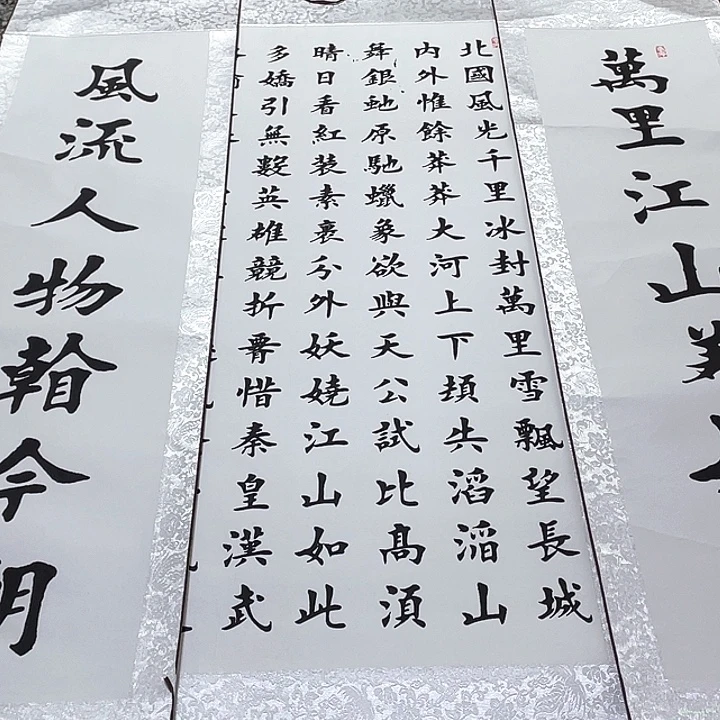 萬里江山
北國風光千里冰封萬里雪飄望長城
内外惟餘莽莽大河上下頓失滔滔山
舞銀虵原馳蠟象欲與天公試比高須
晴日看紅装素裹分外妖嬈江山如此
多嬌引無數英雄競折腰惜秦皇漢武
風流人物看今朝